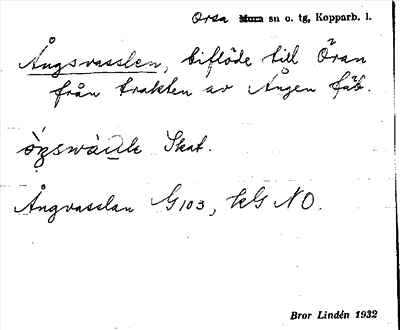 Orsa Mora sn o. tg, Kopparb. l.
Ångsvasslen, biflöde till Öran
från trakten av Ången fäb.
Skat.
Ångvasslan G103, KG NO.
Bror Lindén 1932